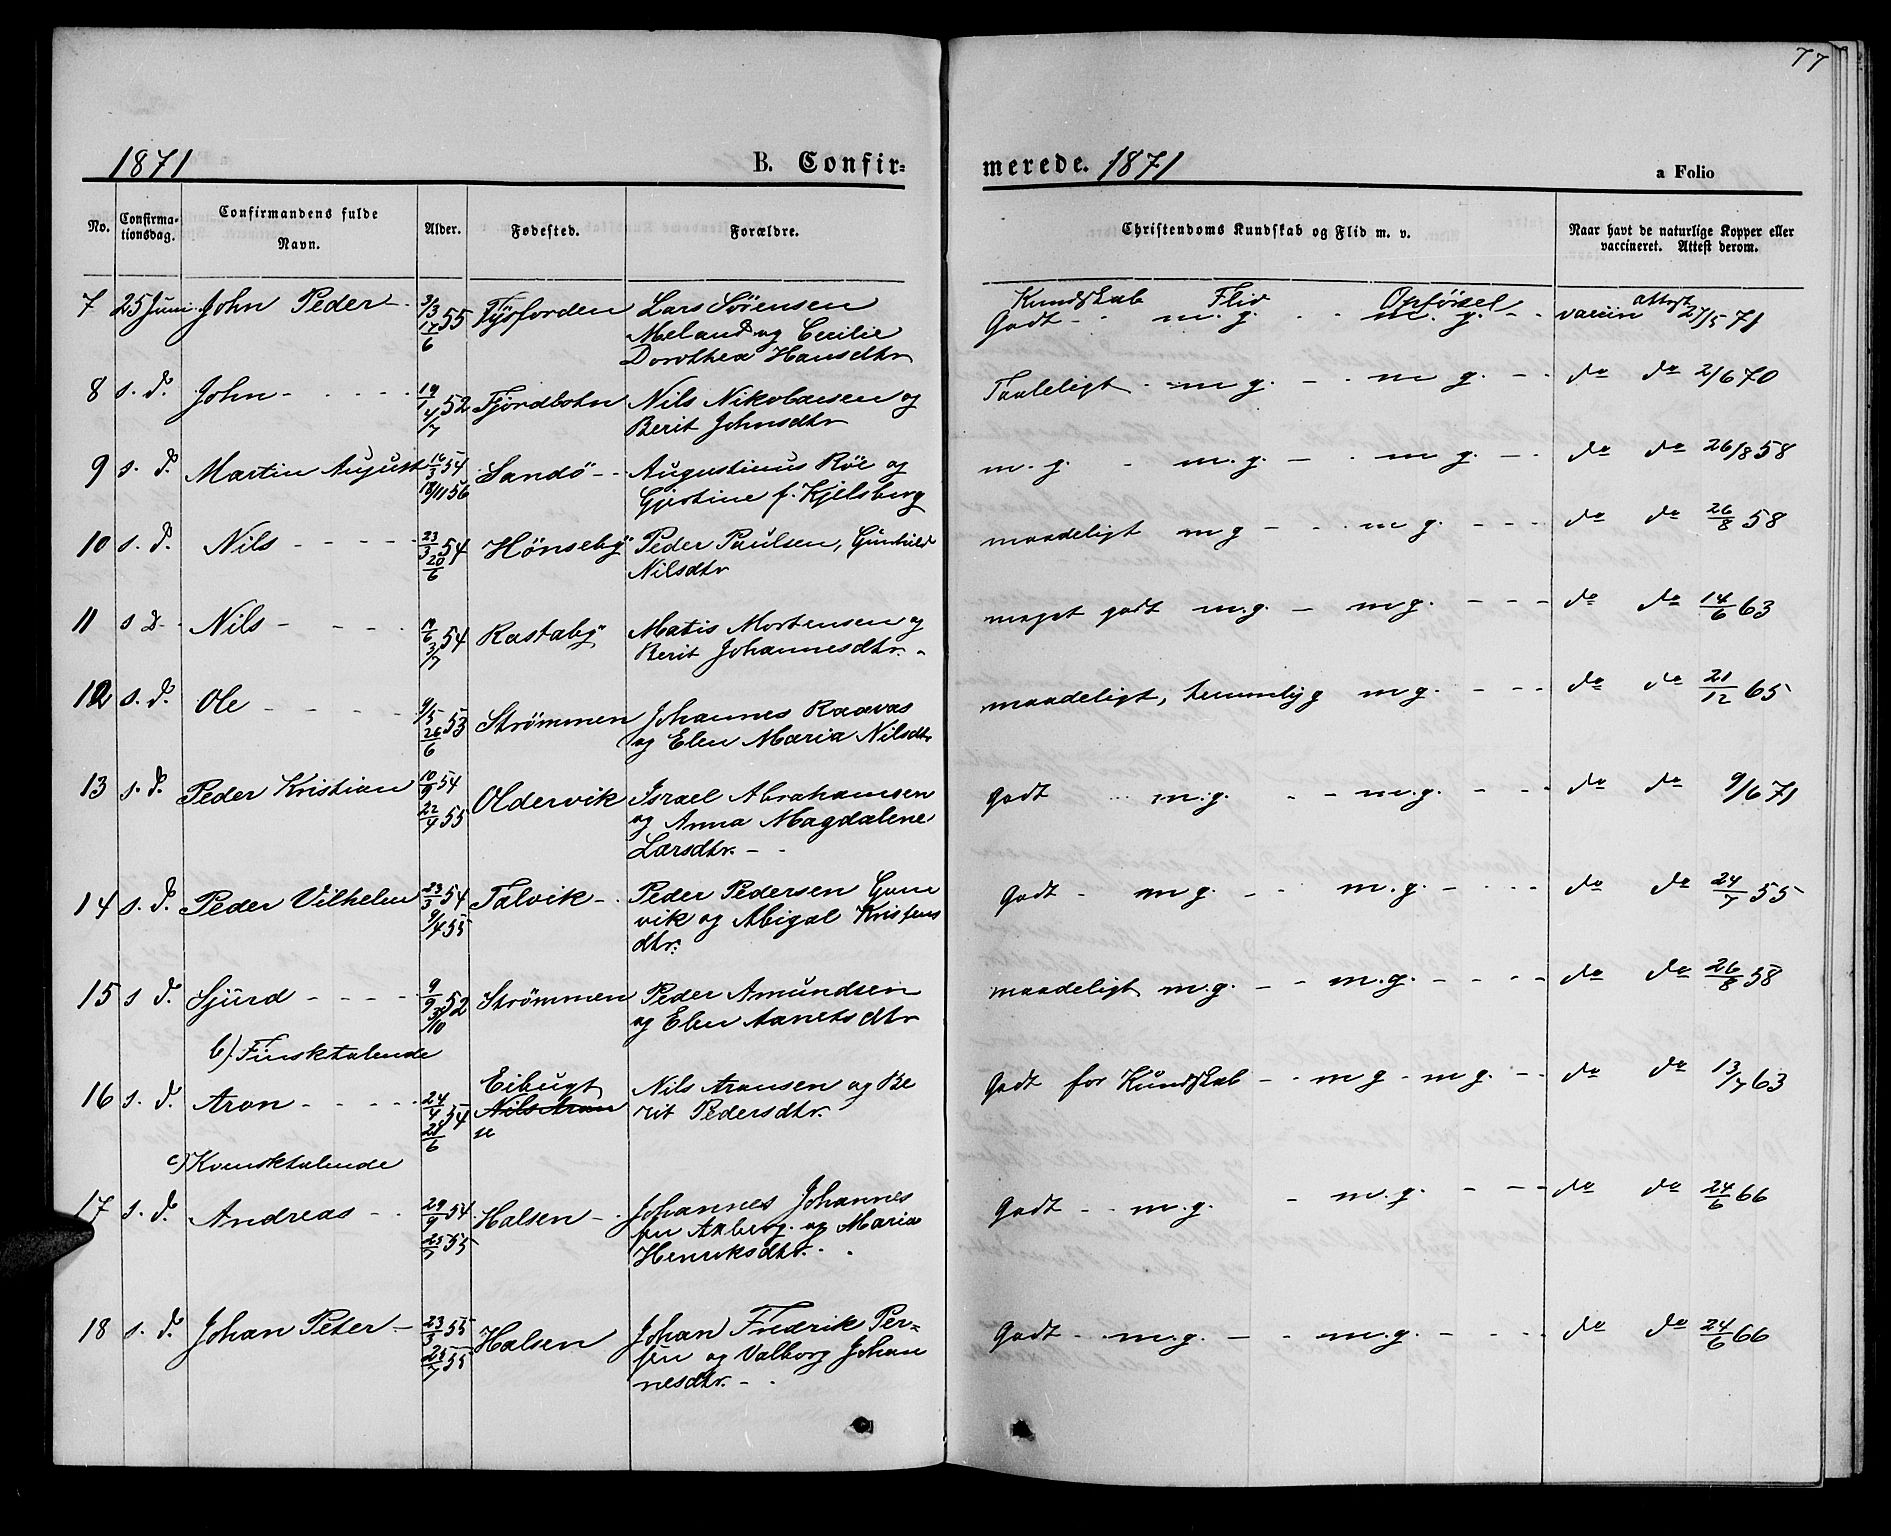 77
1871 B. Confir=
merede. 1871 a Folio
No. Confirma-tionsdag. Confirmandens fulde Navn. Alder. Fødested. Forældre. Christendoms Kundskab og Flid m. v. Naar havt de naturlige Kopper eller vaccineret. Attest derom.
Kundskab Flid Opførsel
7 25 Juni John Peder 3/3 17/6 55 Lars Sørensen Godt m. g. m. g. vaccin attest 27/5 71
Meland og Cecilie
Dorothea Hansdtr
8 s. d. John 52 Fjordbotn Nils Nikolaisen og Taaleligt m g. m g. do do 2/6 70
Berit Johnsdtr
9 s. d. Martin August 16/3 54 Sandö Augustinus Röe og m. g. m. g. m g. do do 26/8 58
18/11 56 Gjertine f. Kjelsberg
10 s. d. Nils 23/3 54 Hönseby Peder Paulsen, Gunhild maadeligt m g m g. do do 26/8 58
20/6 Nilsdtr
11 s d. Nils 54 Rastaby Matis Mortensen og meget godt m.g. m g. do do 14/6 63
3/7 Berit Johannesdtr.
12 s. d. Ole 9/5 53 Strömmen Johannes Raavas maadeligt, temmelig g m g. do do 21/12 65
26/6 og Elen Maria Nilsdtr
13 s. d. Peder Kristian 10/9 54 Oldervik Israel Abrahamsen Godt m.g. m.g. do do 9/6 71
22/4 55 og Anna Magdalene
Larsdtr.
14 s. d. Peder Vilhelm 23/3 54 Talvik Peder Pedersen Gam Godt m g. m.g. do do 24/7 55
9/4 55 vik og Abigal Kristens
dtr.
15 s d. Sjurd 9/9 52 Strömmen Peder Amundsen maadeligt m.g. m.g. do do 26/8 58
3/10 og Elen Aanetsdtr
b) Finsktalende
16 s. d. Aron 24/4 54 Eibugt Nils Aronsen og Be Godt for Kundskab m g m g. do do 13/7 63
Nils Aron
se rit Pedersdtr.
c) Kvensktalende
17 s. d. Andreas 29/9 54 Halsen Johannes Johannes Godt m.g. m.g. do do 24/6 66
25/7 55 sen Aaberg. og Maria
Henriksdtr.
18 s. d. Johan Peter 23/3 55 Halsen Johan Fredrik Per= Godt m.g. m.g. do do 24/6 66
25/7 55 sen og Valborg Johan
nesdtr.